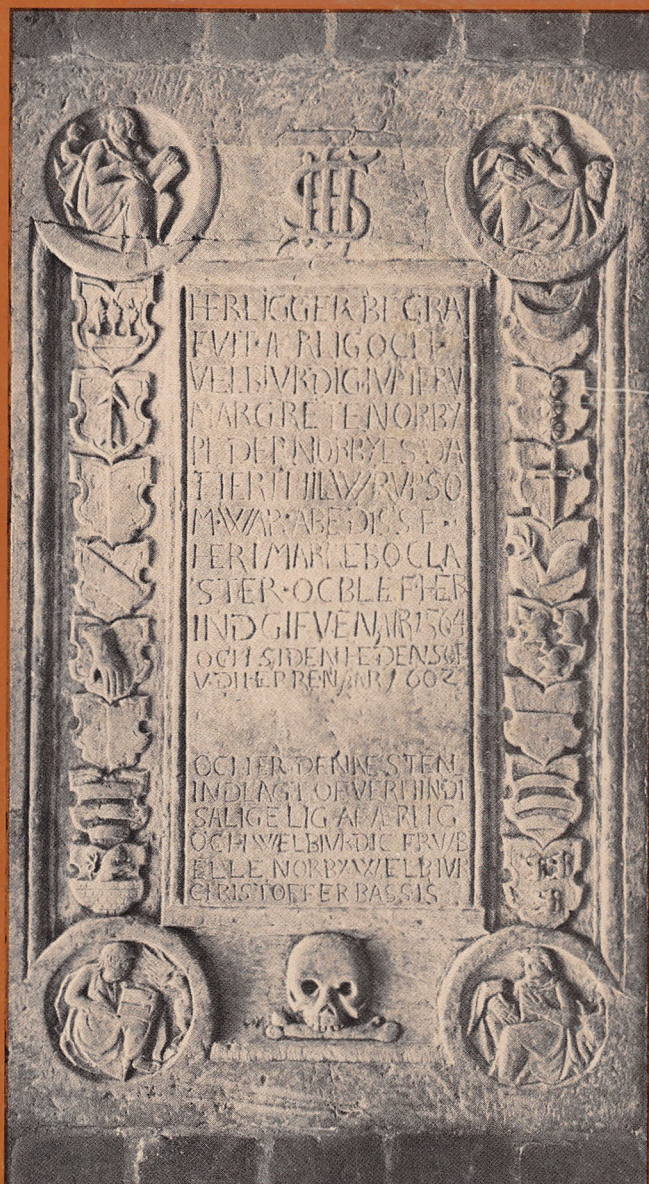 IHS
HERLIGGER BEGRA
FVIT·ÆRLIG OCH·
VELBIVRDIG·IVMFRV
MARGRETE NORBY
PEDER NORBYES DA
TTER THIL W/RVP SO
M·WAR·ABEDISSE·
HER I MARIEBO CLA
STER·OC BLEF HER
INDGIFVEN AAR 1564
OCH SIDEN
VDI HERREN AAR 1602
OCH ER DENNE STEN
INDLAGT OFVER HINDI
SALIGE LIG AF ÆRLIG
OCH WELBIVRDIG FRV·B
ELLE NORBY WELBIVR
CHRISTOFFER BASSIS